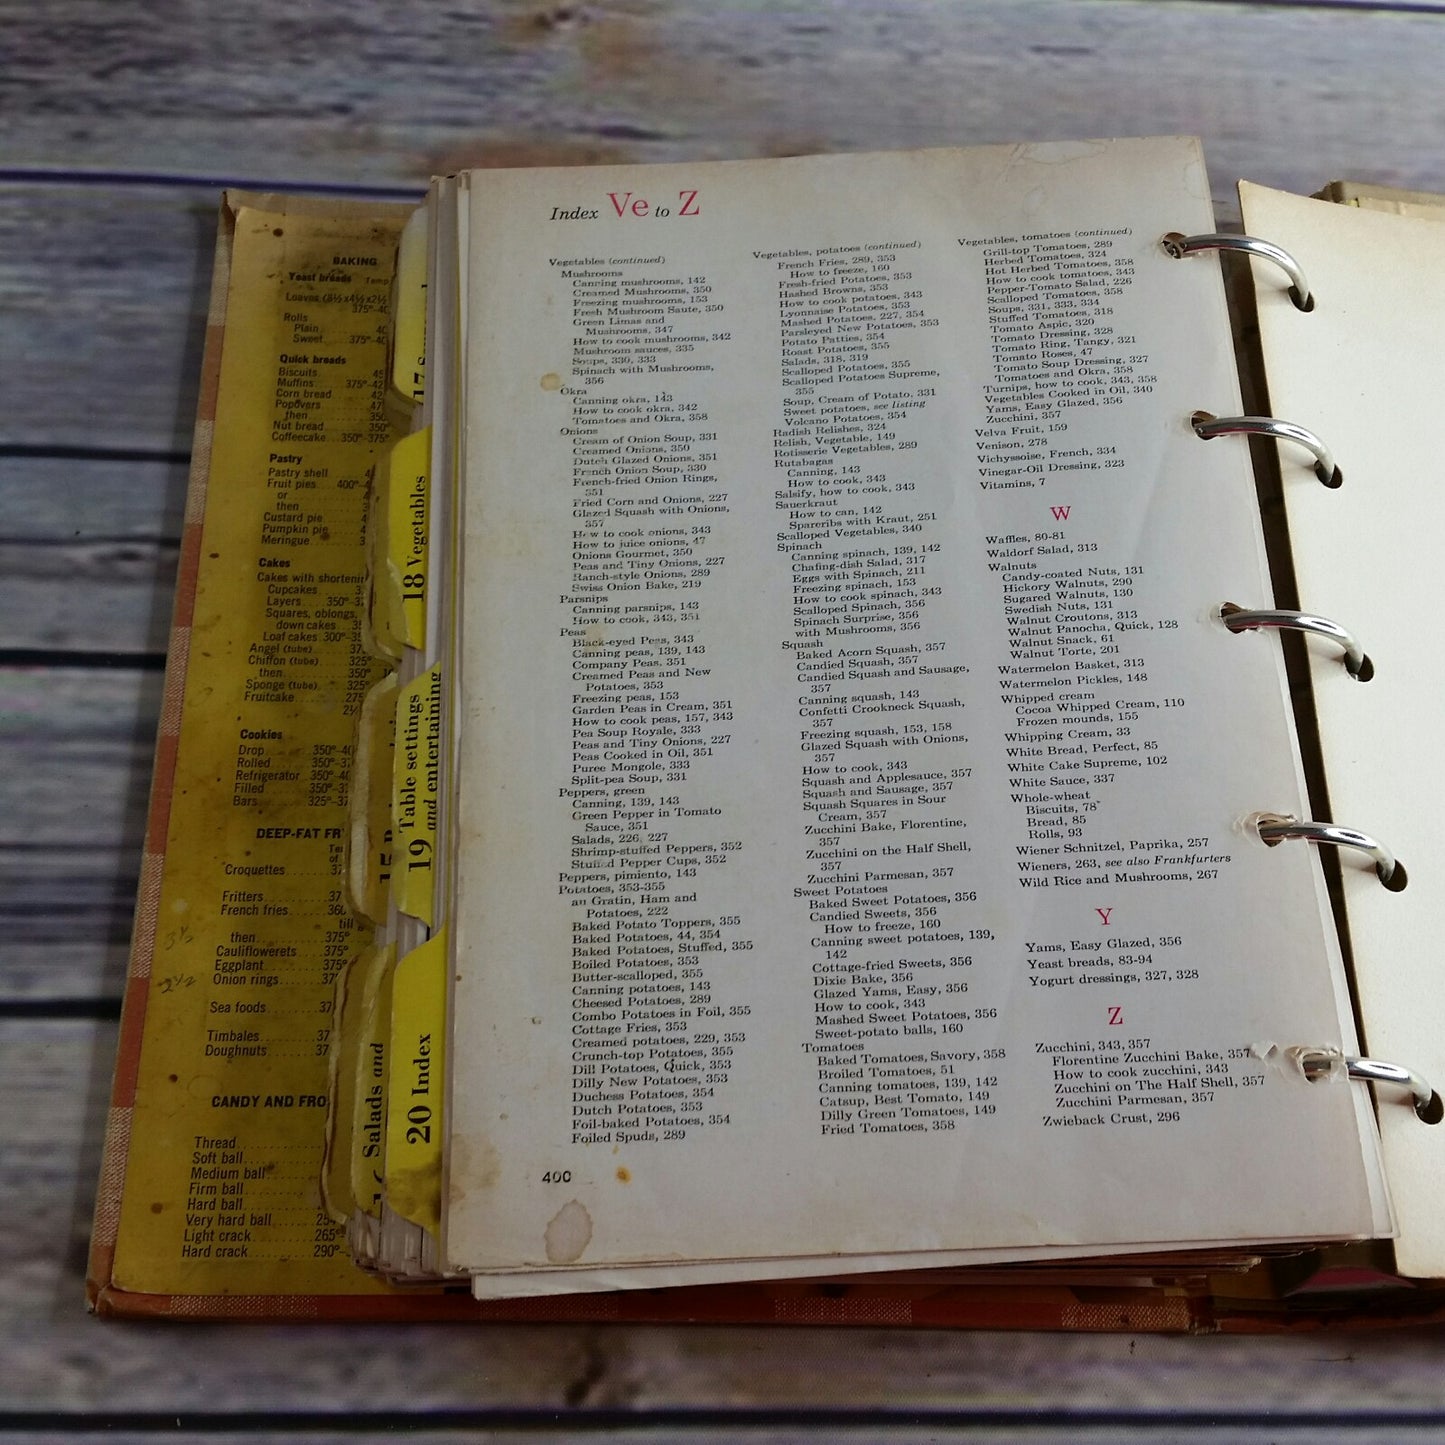 BAKING
Yeast breads Temp
Loaves (8½x4½x2½
375°-40
Rolls
Plain
Sweet 375°-40
Quick breads
Biscuits
Muffins 375°-42
Corn bread
Popovers
then
Nut bread 350°
Coffeecake 350°-375°
Pastry
Pastry shell
Fruit pies 400°
or
then
Custard pie
Pumpkin pie
Meringue
Cakes
Cakes with shortenin
Cupcakes
Layers 350°-3
Squares, oblongs,
down cakes
Loaf cakes 300°-35
Angel (tube) 37
Chiffon (tube) 325°
then 350°
Sponge (tube) 325°
Fruitcake 275
Cookies
Drop 350°-40
Rolled 350°-37
Refrigerator 350°-40
Filled 350°-3
Bars 325°-37
DEEP-FAT FR
Te
of
Croquettes 37
Fritters 37
French fries 360
till
then 375°
Cauliflowerets 375°
Eggplant 375°
Onion rings 37
Sea foods 37
Timbales 37
Doughnuts 37
3½
2½
CANDY AND FRO
Thread
Soft ball
Medium ball
Firm ball
Hard ball
Very hard ball 25
Light crack 265°
Hard crack 290°
18 Vegetables
19 Table settings
and entertaining
Salads and
20 Index
Index Ve to Z
Vegetables (continued)
Mushrooms
Canning mushrooms, 142
Creamed Mushrooms, 350
Freezing mushrooms, 153
Fresh Mushroom Saute, 350
Green Limas and
Mushrooms, 347
How to cook mushrooms, 342
Mushroom sauces, 335
Soups, 330, 333
Spinach with Mushrooms,
356
Okra
Canning okra, 143
How to cook okra, 342
Tomatoes and Okra, 358
Onions
Cream of Onion Soup, 331
Creamed Onions, 350
Dutch Glazed Onions, 351
French Onion Soup, 330
French-fried Onion Rings,
351
Fried Corn and Onions, 227
Glazed Squash with Onions,
357
How to cook onions, 343
How to juice onions, 47
Onions Gourmet, 350
Peas and Tiny Onions, 227
Ranch-style Onions, 289
Swiss Onion Bake, 219
Parsnips
Canning parsnips, 143
How to cook, 343, 351
Peas
Black-eyed Peas, 343
Canning peas, 139, 143
Company Peas, 351
Creamed Peas and New
Potatoes, 353
Freezing peas, 153
Garden Peas in Cream, 351
How to cook peas, 157, 343
Pea Soup Royale, 333
Peas and Tiny Onions, 227
Peas Cooked in Oil, 351
Puree Mongole, 333
Split-pea Soup, 331
Peppers, green
Canning, 139, 143
Green Pepper in Tomato
Sauce, 351
Salads, 226, 227
Shrimp-stuffed Peppers, 352
Stuffed Pepper Cups, 352
Peppers, pimiento, 143
Potatoes, 353-355
au Gratin, Ham and
Potatoes, 222
Baked Potato Toppers, 355
Baked Potatoes, 44, 354
Baked Potatoes, Stuffed, 355
Boiled Potatoes, 353
Butter-scalloped, 355
Canning potatoes, 143
Cheesed Potatoes, 289
Combo Potatoes in Foil, 355
Cottage Fries, 353
Creamed potatoes, 229, 353
Crunch-top Potatoes, 355
Dill Potatoes, Quick, 353
Dilly New Potatoes, 353
Duchess Potatoes, 354
Dutch Potatoes, 353
Foil-baked Potatoes, 354
Foiled Spuds, 289
400
Vegetables, potatoes (continued)
French Fries, 289, 353
How to freeze, 160
Fresh-fried Potatoes, 353
Hashed Browns, 353
How to cook potatoes, 343
Lyonnaise Potatoes, 353
Mashed Potatoes, 227, 354
Parsleyed New Potatoes, 353
Potato Patties, 354
Roast Potatoes, 355
Salads, 318, 319
Scalloped Potatoes, 355
Scalloped Potatoes Supreme,
355
Soup, Cream of Potato, 331
Sweet potatoes, see listing
Volcano Potatoes, 354
Radish Relishes, 324
Relish, Vegetable, 149
Rotisserie Vegetables, 289
Rutabagas
Canning, 143
How to cook, 343
Salsify, how to cook, 343
Sauerkraut
How to can, 142
Spareribs with Kraut, 251
Scalloped Vegetables, 340
Spinach
Canning spinach, 139, 142
Chafing-dish Salad, 317
Eggs with Spinach, 211
Freezing spinach, 153
How to cook spinach, 343
Scalloped Spinach, 356
Spinach Surprise, 356
with Mushrooms, 356
Squash
Baked Acorn Squash, 357
Candied Squash, 357
Candied Squash and Sausage,
357
Canning squash, 143
Confetti Crookneck Squash,
357
Freezing squash, 153, 158
Glazed Squash with Onions,
357
How to cook, 343
Squash and Applesauce, 357
Squash and Sausage, 357
Squash Squares in Sour
Cream, 357
Zucchini Bake, Florentine,
357
Zucchini on the Half Shell,
357
Zucchini Parmesan, 357
Sweet Potatoes
Baked Sweet Potatoes, 356
Candied Sweets, 356
How to freeze, 160
Canning sweet potatoes, 139,
142
Cottage-fried Sweets, 356
Dixie Bake, 356
Glazed Yams, Easy, 356
How to cook, 343
Mashed Sweet Potatoes, 356
Sweet-potato balls, 160
Tomatoes
Baked Tomatoes, Savory, 358
Broiled Tomatoes, 51
Canning tomatoes, 139, 142
Catsup, Best Tomato, 149
Dilly Green Tomatoes, 149
Fried Tomatoes, 358
Vegetables, tomatoes (continued)
Grill-top Tomatoes, 289
Herbed Tomatoes, 324
Hot Herbed Tomatoes, 358
How to cook tomatoes, 343
Pepper-Tomato Salad, 226
Scalloped Tomatoes, 358
Soups, 331, 333, 334
Stuffed Tomatoes, 318
Tomato Aspic, 320
Tomato Dressing, 328
Tomato Ring, Tangy, 321
Tomato Roses, 47
Tomato Soup Dressing, 327
Tomatoes and Okra, 358
Turnips, how to cook, 343, 358
Vegetables Cooked in Oil, 340
Yams, Easy Glazed, 356
Zucchini, 357
Velva Fruit, 159
Venison, 278
Vichyssoise, French, 334
Vinegar-Oil Dressing, 323
Vitamins, 7
W
Waffles, 80-81
Waldorf Salad, 313
Walnuts
Candy-coated Nuts, 131
Hickory Walnuts, 290
Sugared Walnuts, 130
Swedish Nuts, 131
Walnut Croutons, 313
Walnut Panocha, Quick, 128
Walnut Snack, 61
Walnut Torte, 201
Watermelon Basket, 313
Watermelon Pickles, 148
Whipped cream
Cocoa Whipped Cream, 110
Frozen mounds, 155
Whipping Cream, 33
White Bread, Perfect, 85
White Cake Supreme, 102
White Sauce, 337
Whole-wheat
Biscuits, 78
Bread, 85
Rolls, 93
Wiener Schnitzel, Paprika, 257
Wieners, 263, see also Frankfurters
Wild Rice and Mushrooms, 267
Y
Yams, Easy Glazed, 356
Yeast breads, 83-94
Yogurt dressings, 327, 328
Z
Zucchini, 343, 357
Florentine Zucchini Bake, 357
How to cook zucchini, 343
Zucchini on The Half Shell, 357
Zucchini Parmesan, 357
Zwieback Crust, 296